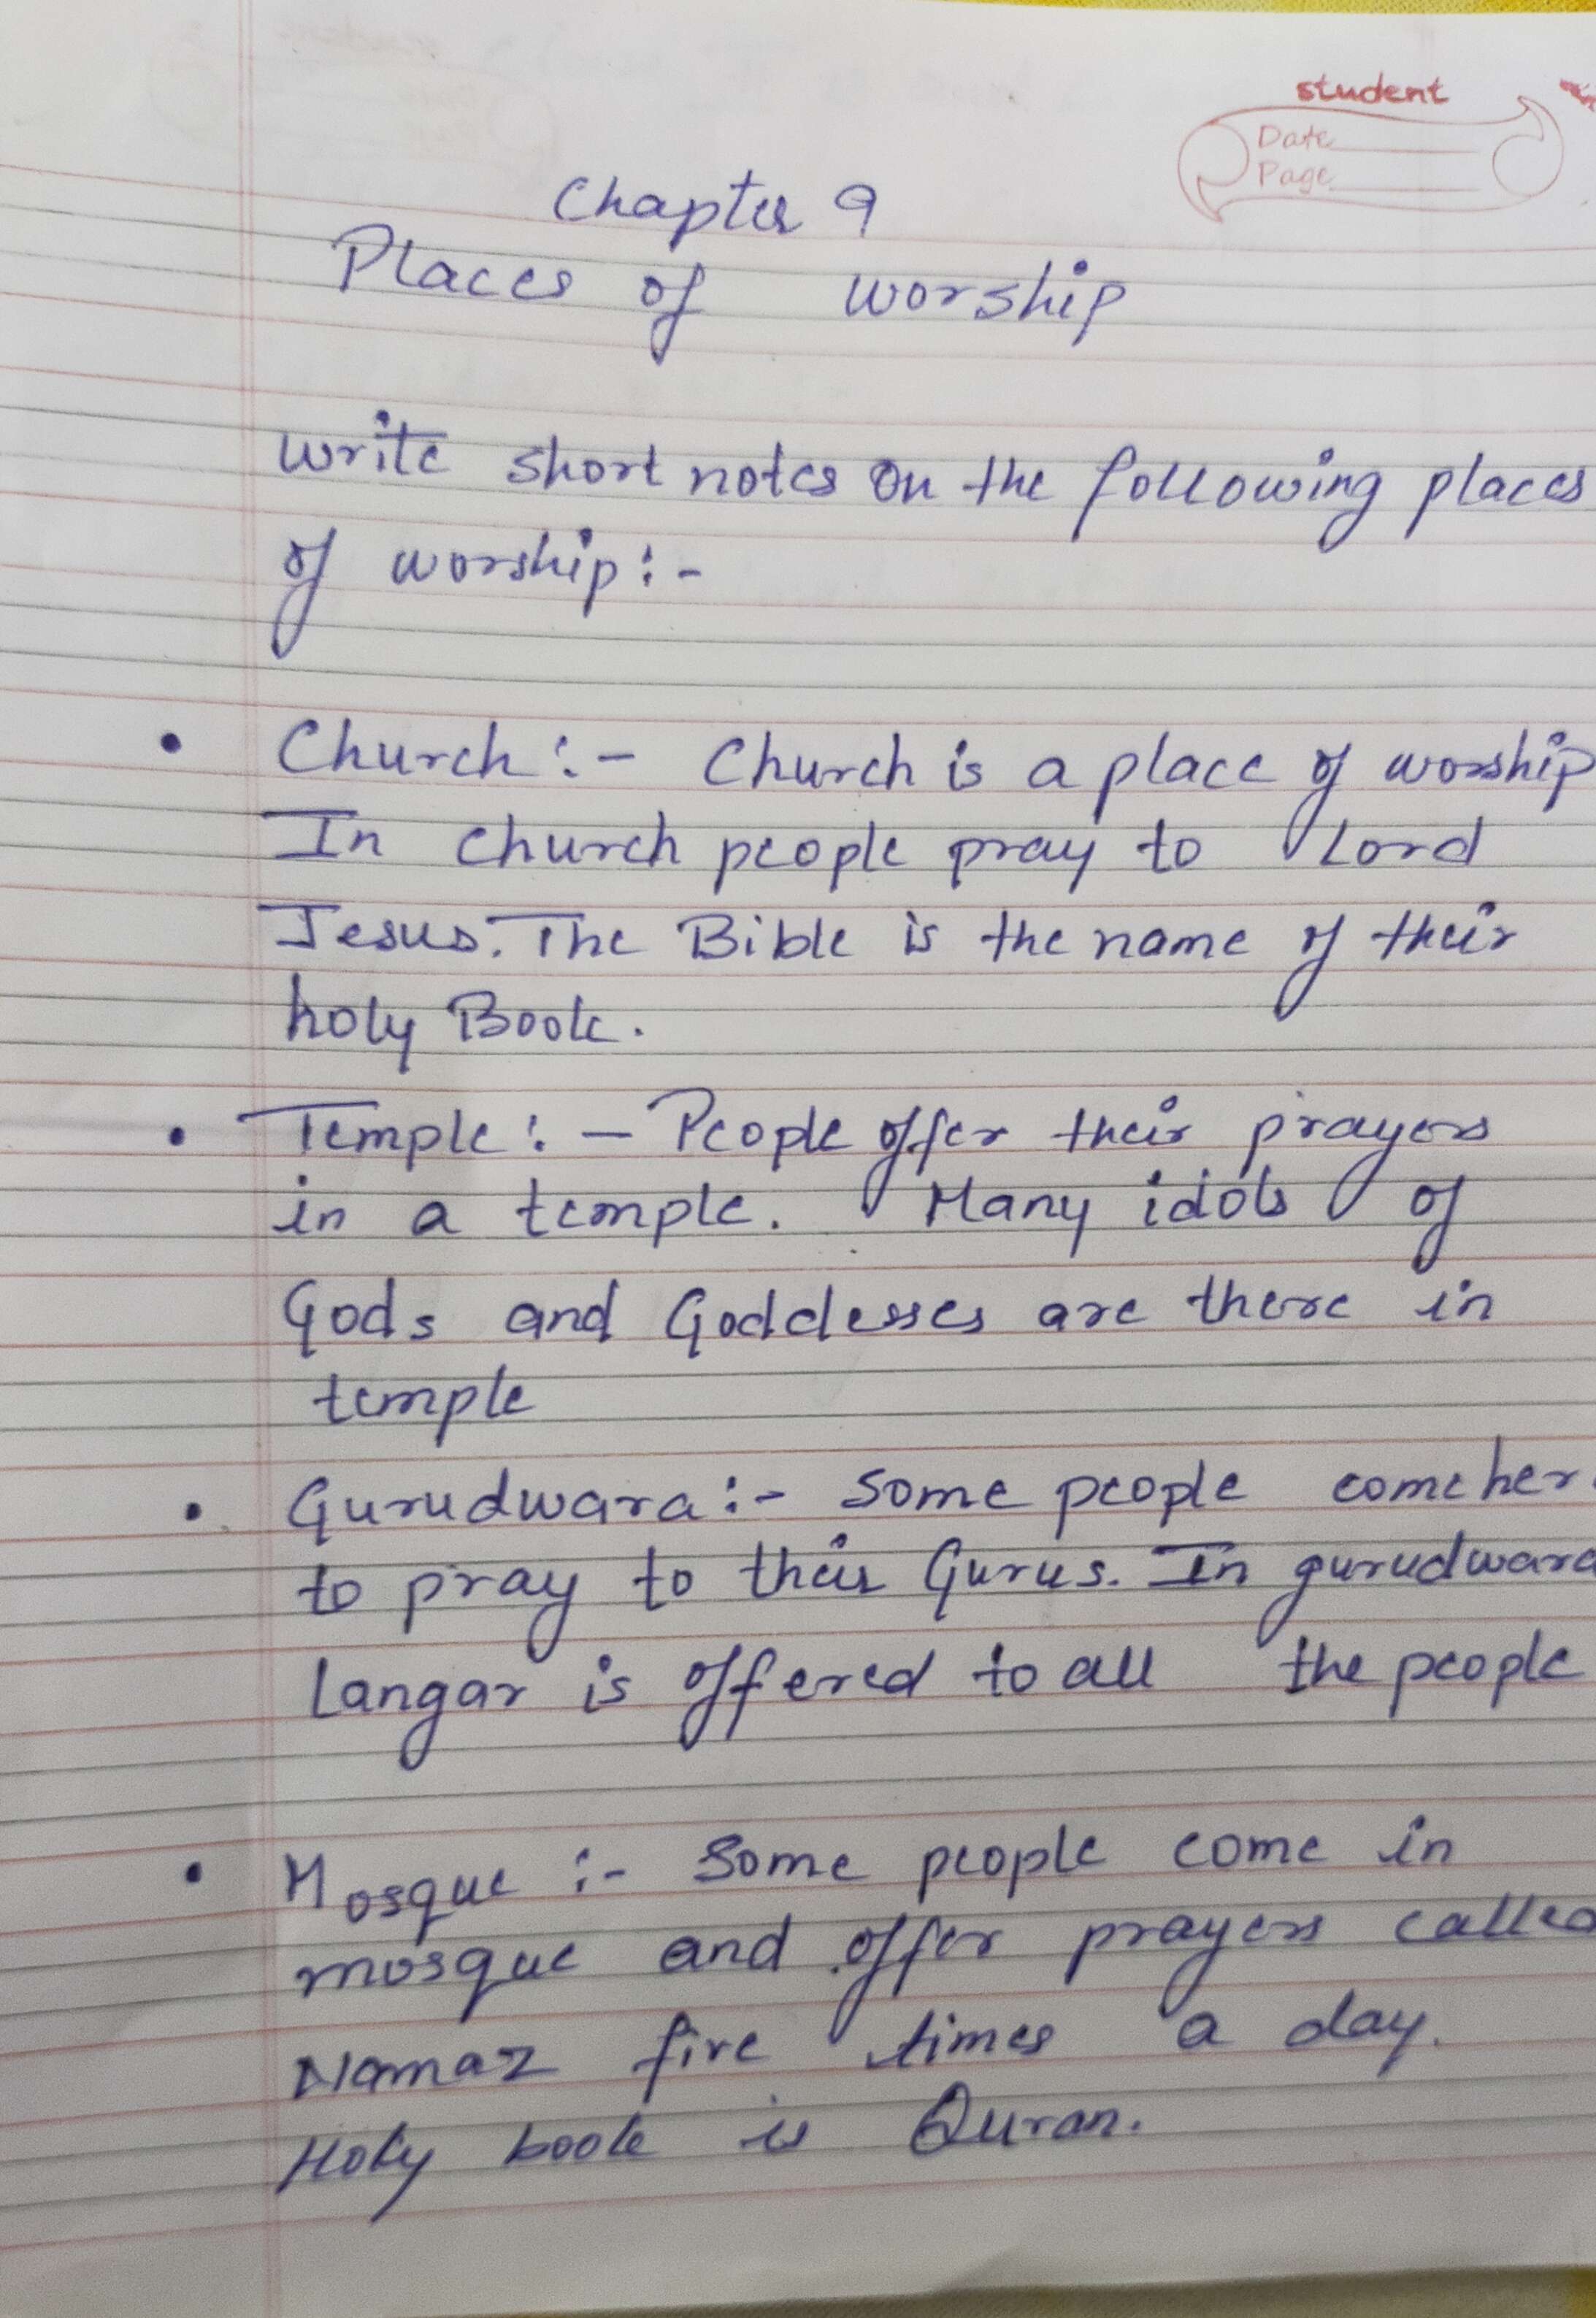 student
Date
Page
Chapter 9
Places of worship
write short notes on the following places
of worship:-
• Church:- Church is a place of worship
In church people pray to Lord
Jesus. The Bible is the name of their
holy Book.
• Temple:- People offer their prayers
in a temple. Many idols of
Gods and Goddesses are there in
temple
• Gurudwara:- Some people come her
to pray to their Gurus. In gurudwara
Langar is offered to all the people
• Mosque:- Some people come in
mosque and offer prayers called
Namaz five times a day.
Holy book is Quran.